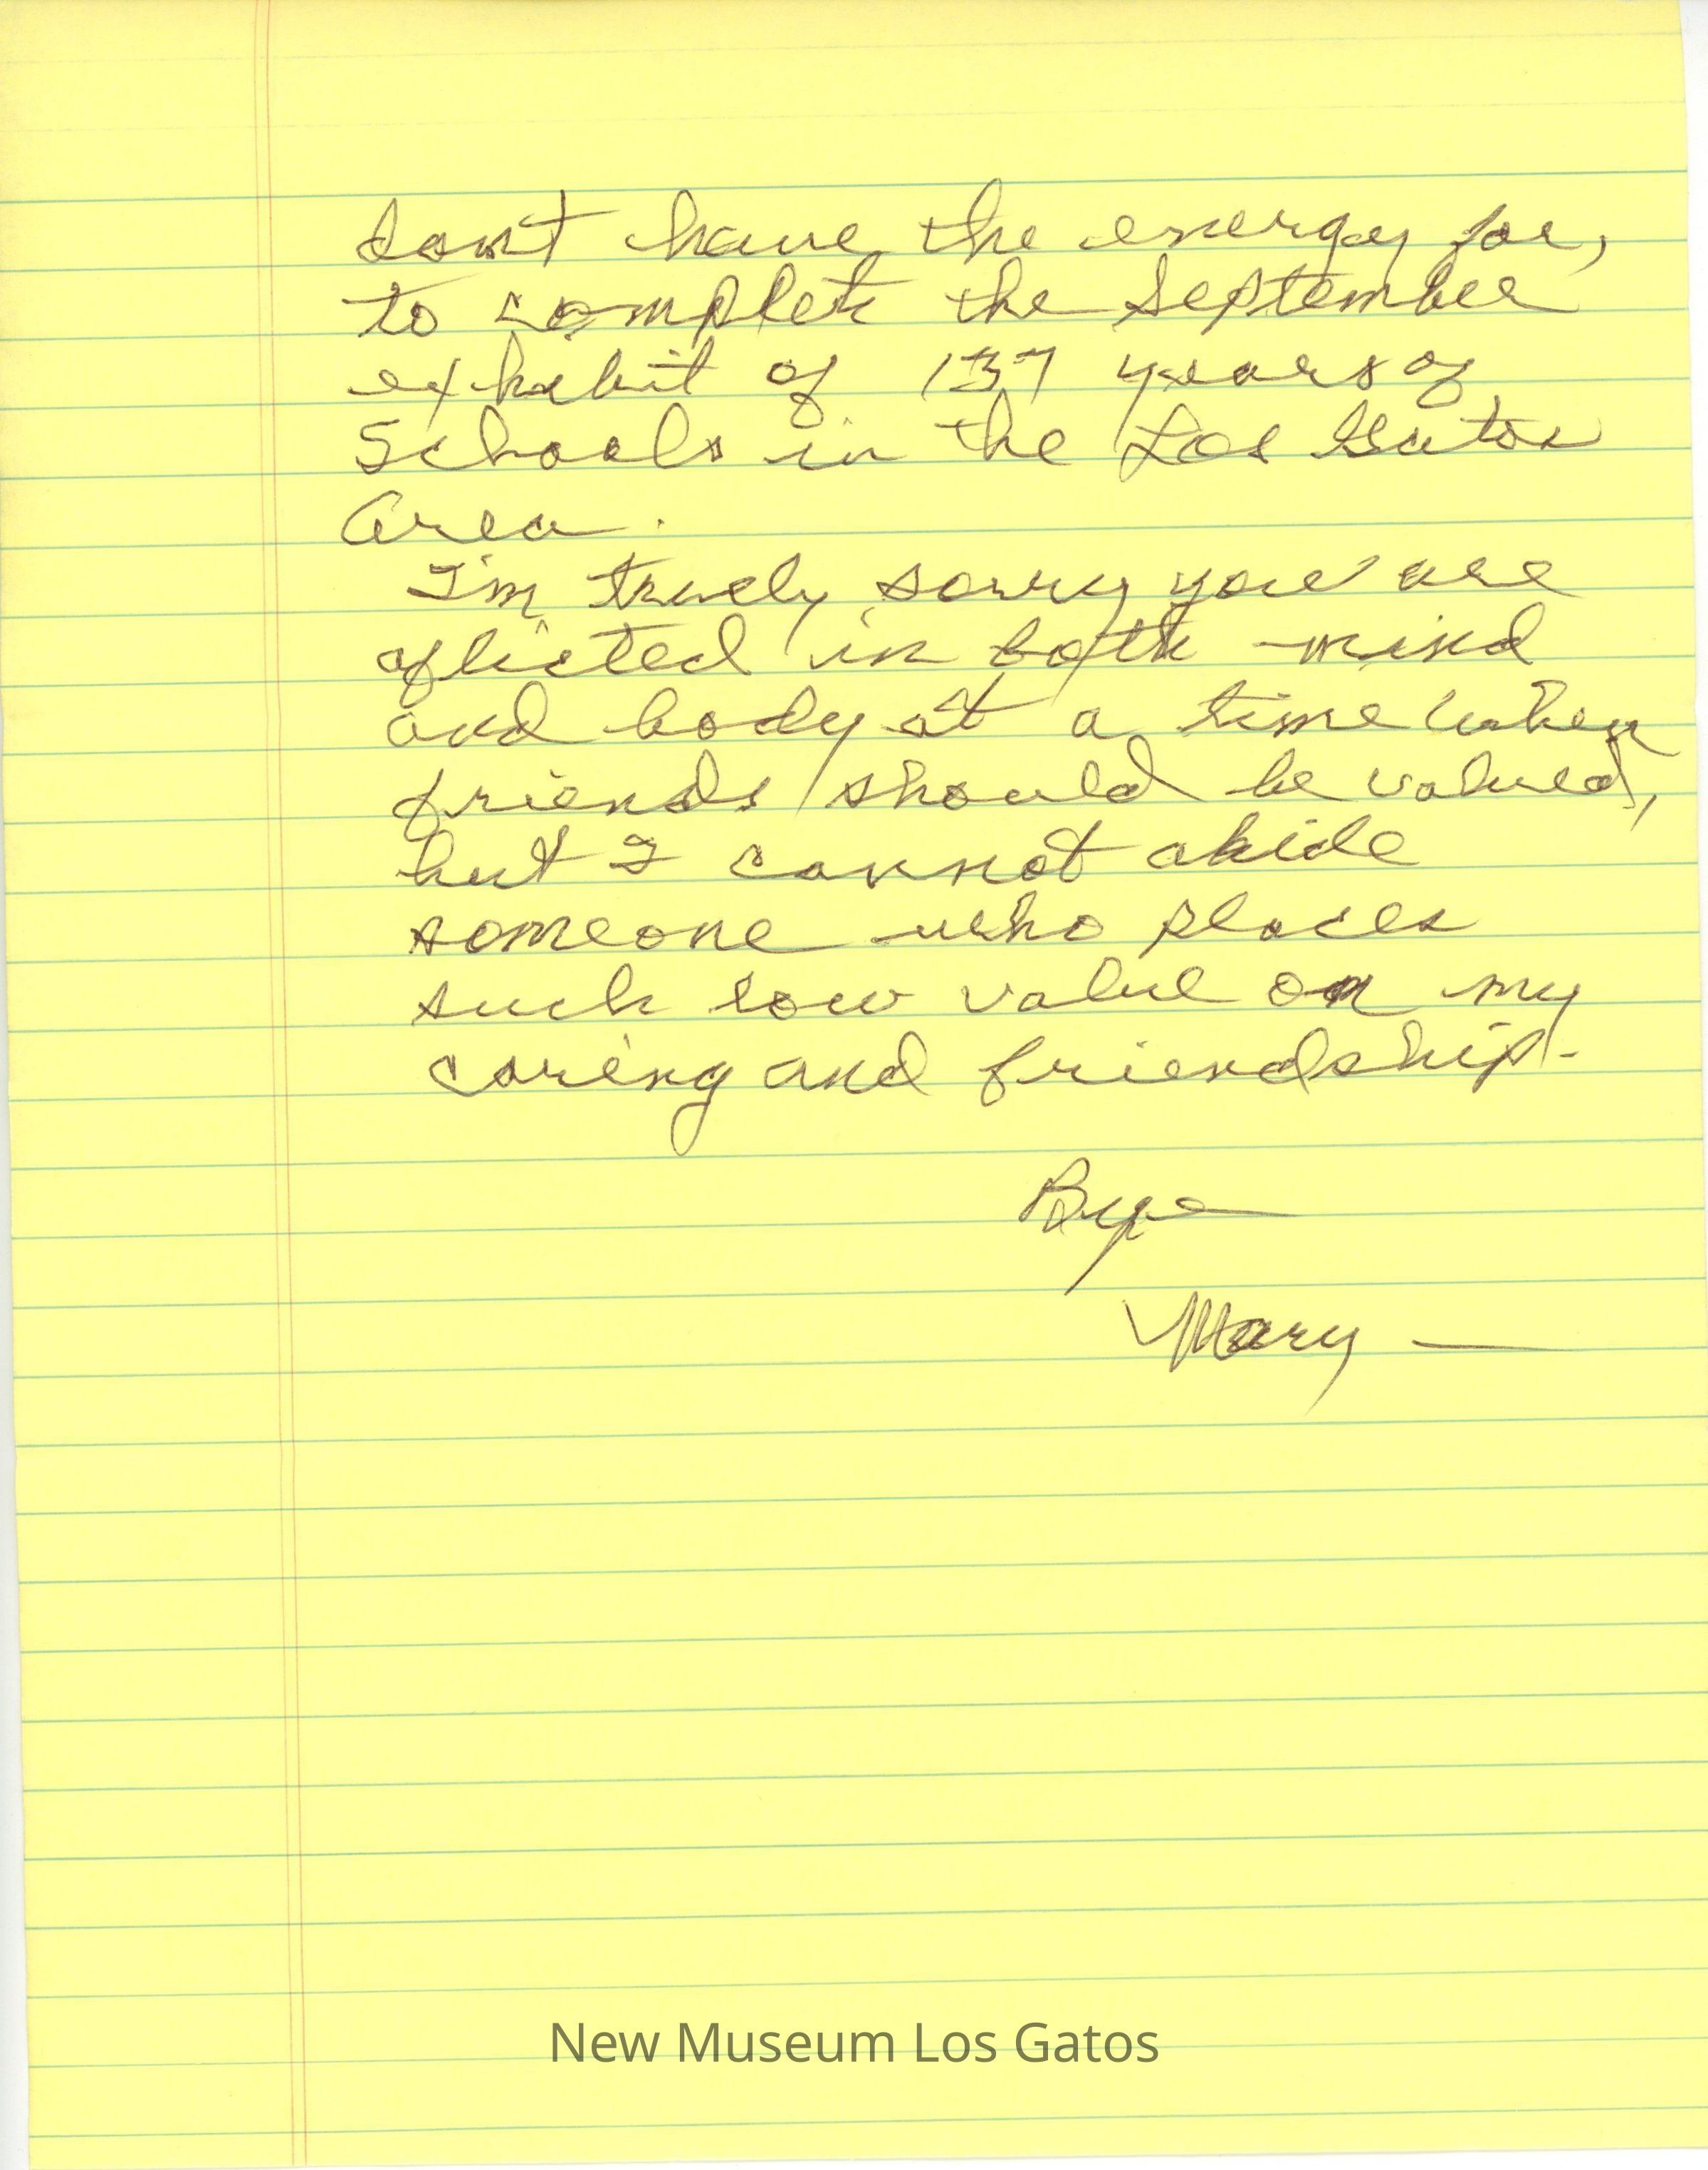 don't have the energy for,
to complete the September
exhibit of 137 years of
Schools in the Los Gatos
Area.
I'm truely sorry you are
aflicted in both mind
and body at a time when
friends should be valued,
but I cannot abide
someone who places
such low value on my
caring and friendship.
Bye
Mary —
New Museum Los Gatos